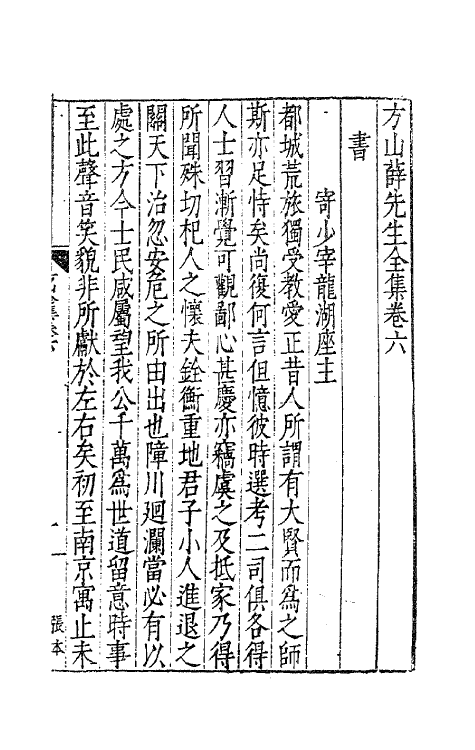 方山薛先生全集卷六
書
寄少宰龍湖座主
都城荒旅獨受教愛正昔人所謂有大賢而為之師
斯亦足恃矣尚復何言但憶彼時選考二司俱各得
人士習漸覺可觀鄙心甚慶亦竊虞之及抵家乃得
所聞殊切杞人之懷夫銓衡重地君子小人進退之
關天下治忽安危之所由出也障川廻瀾當必有以
處之方今士民咸屬望我公千萬爲世道留意時事
至此聲音笑貌非所獻於左右矣初至南京寓止未
一
張本